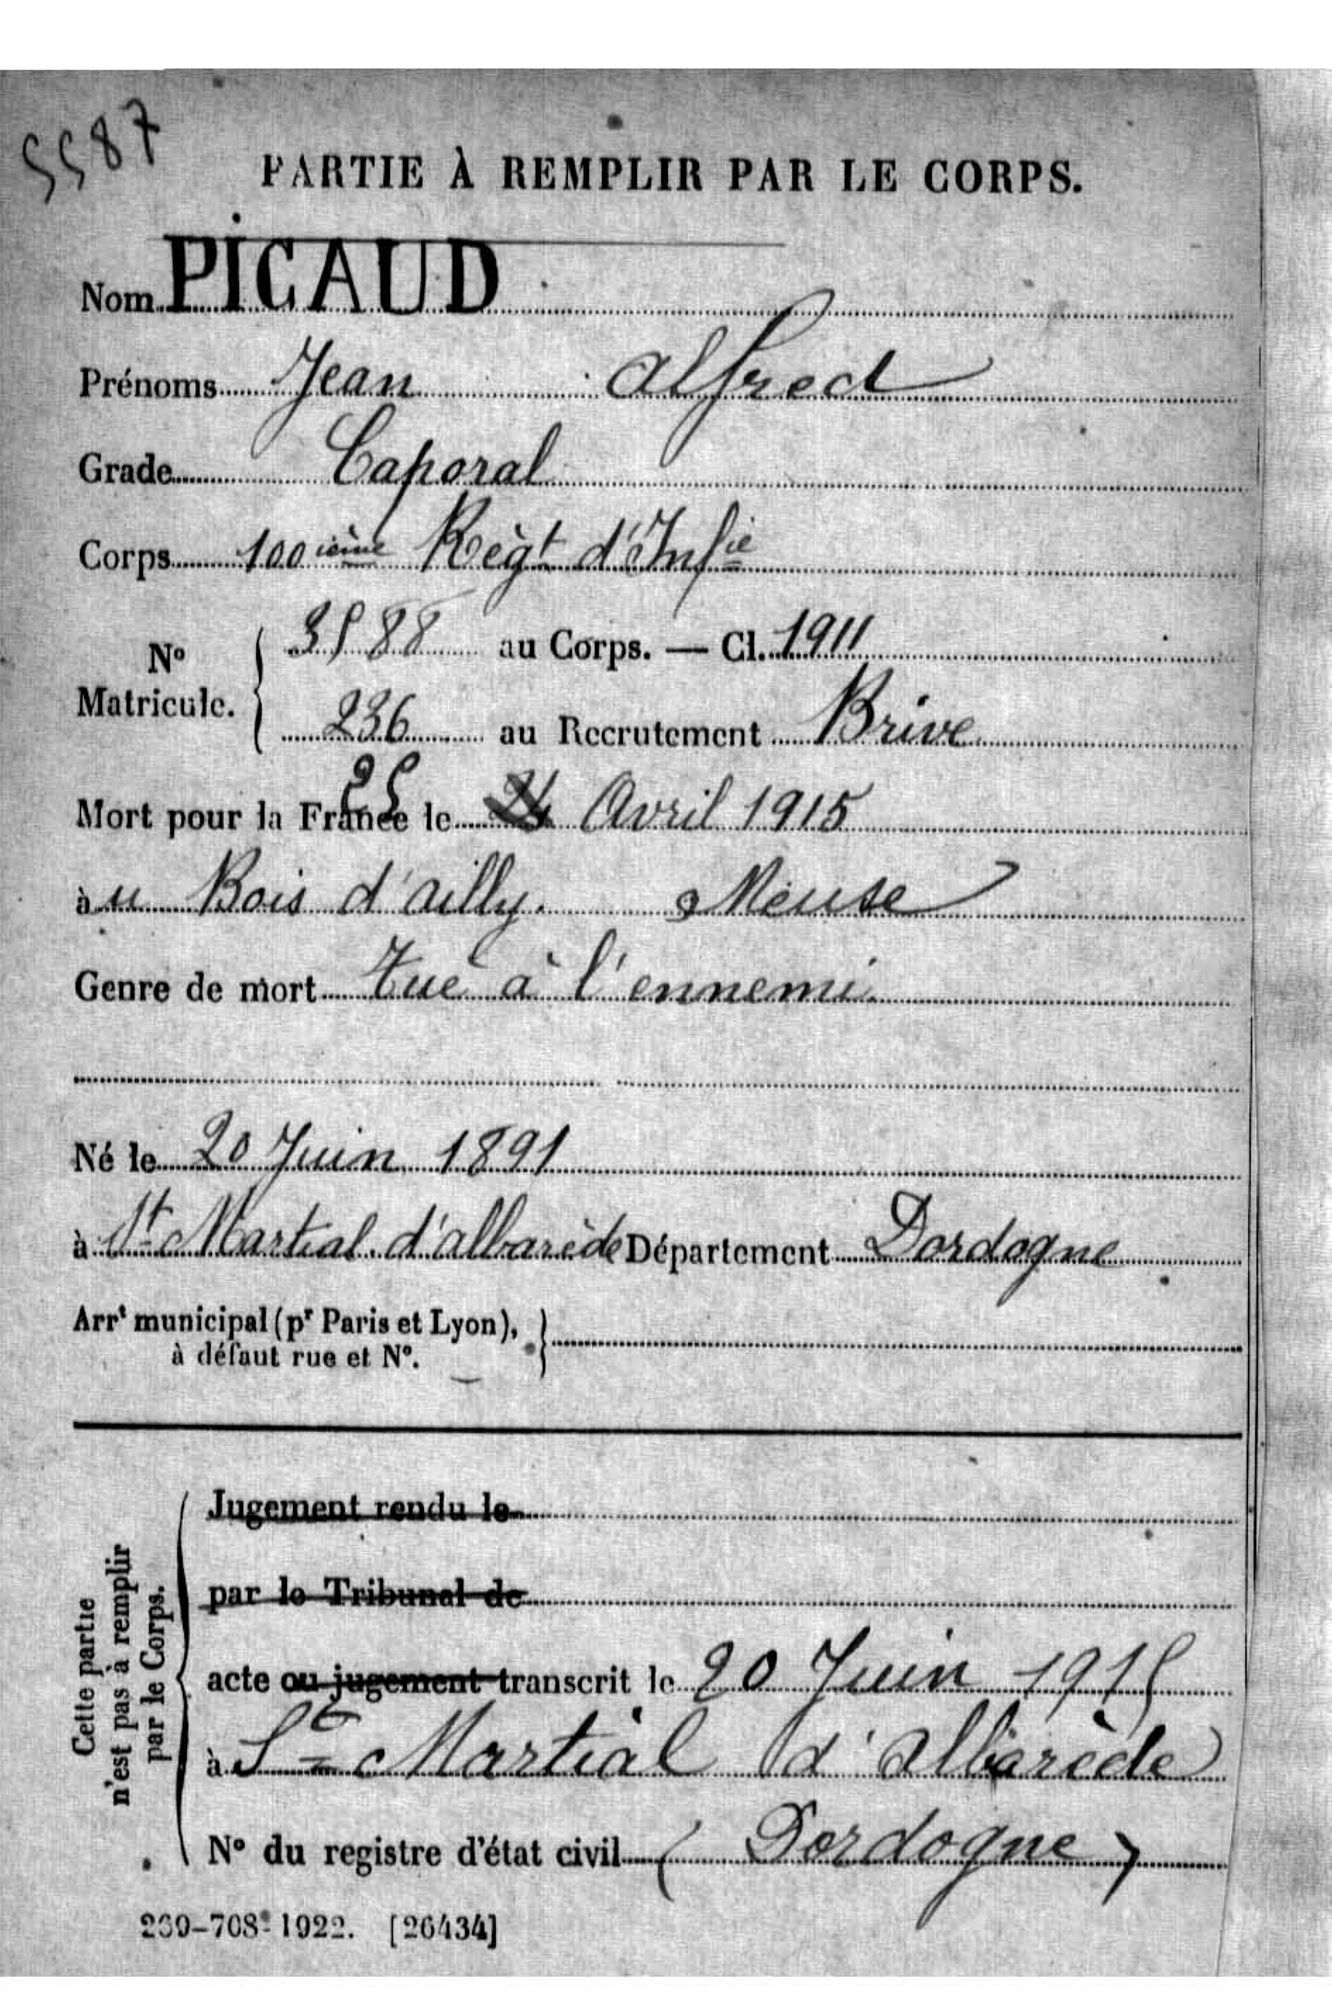 5587
PARTIE À REMPLIR PAR LE CORPS.
Nom PICAUD
Prénoms Jean Alfred
Grade Caporal
Corps 100ième Règt d'Infie
N° Matricule. 3588 au Corps. — Cl. 1911
236 au Recrutement Brive
25
Mort pour la France le 24 Avril 1915
à u Bois d'ailly. Meuse
Genre de mort Tué à l'ennemi
Né le 20 Juin 1891
à St Martial d'albarède Département Dordogne
Arrt municipal (pr Paris et Lyon),
à défaut rue et N°.
Cette partie
n'est pas à remplir
par le Corps.
Jugement rendu le
par le Tribunal de
acte ou jugement transcrit le 20 Juin 1915
à St Martial d'albarède
N° du registre d'état civil ( Dordogne )
269-708-1922. [26434]